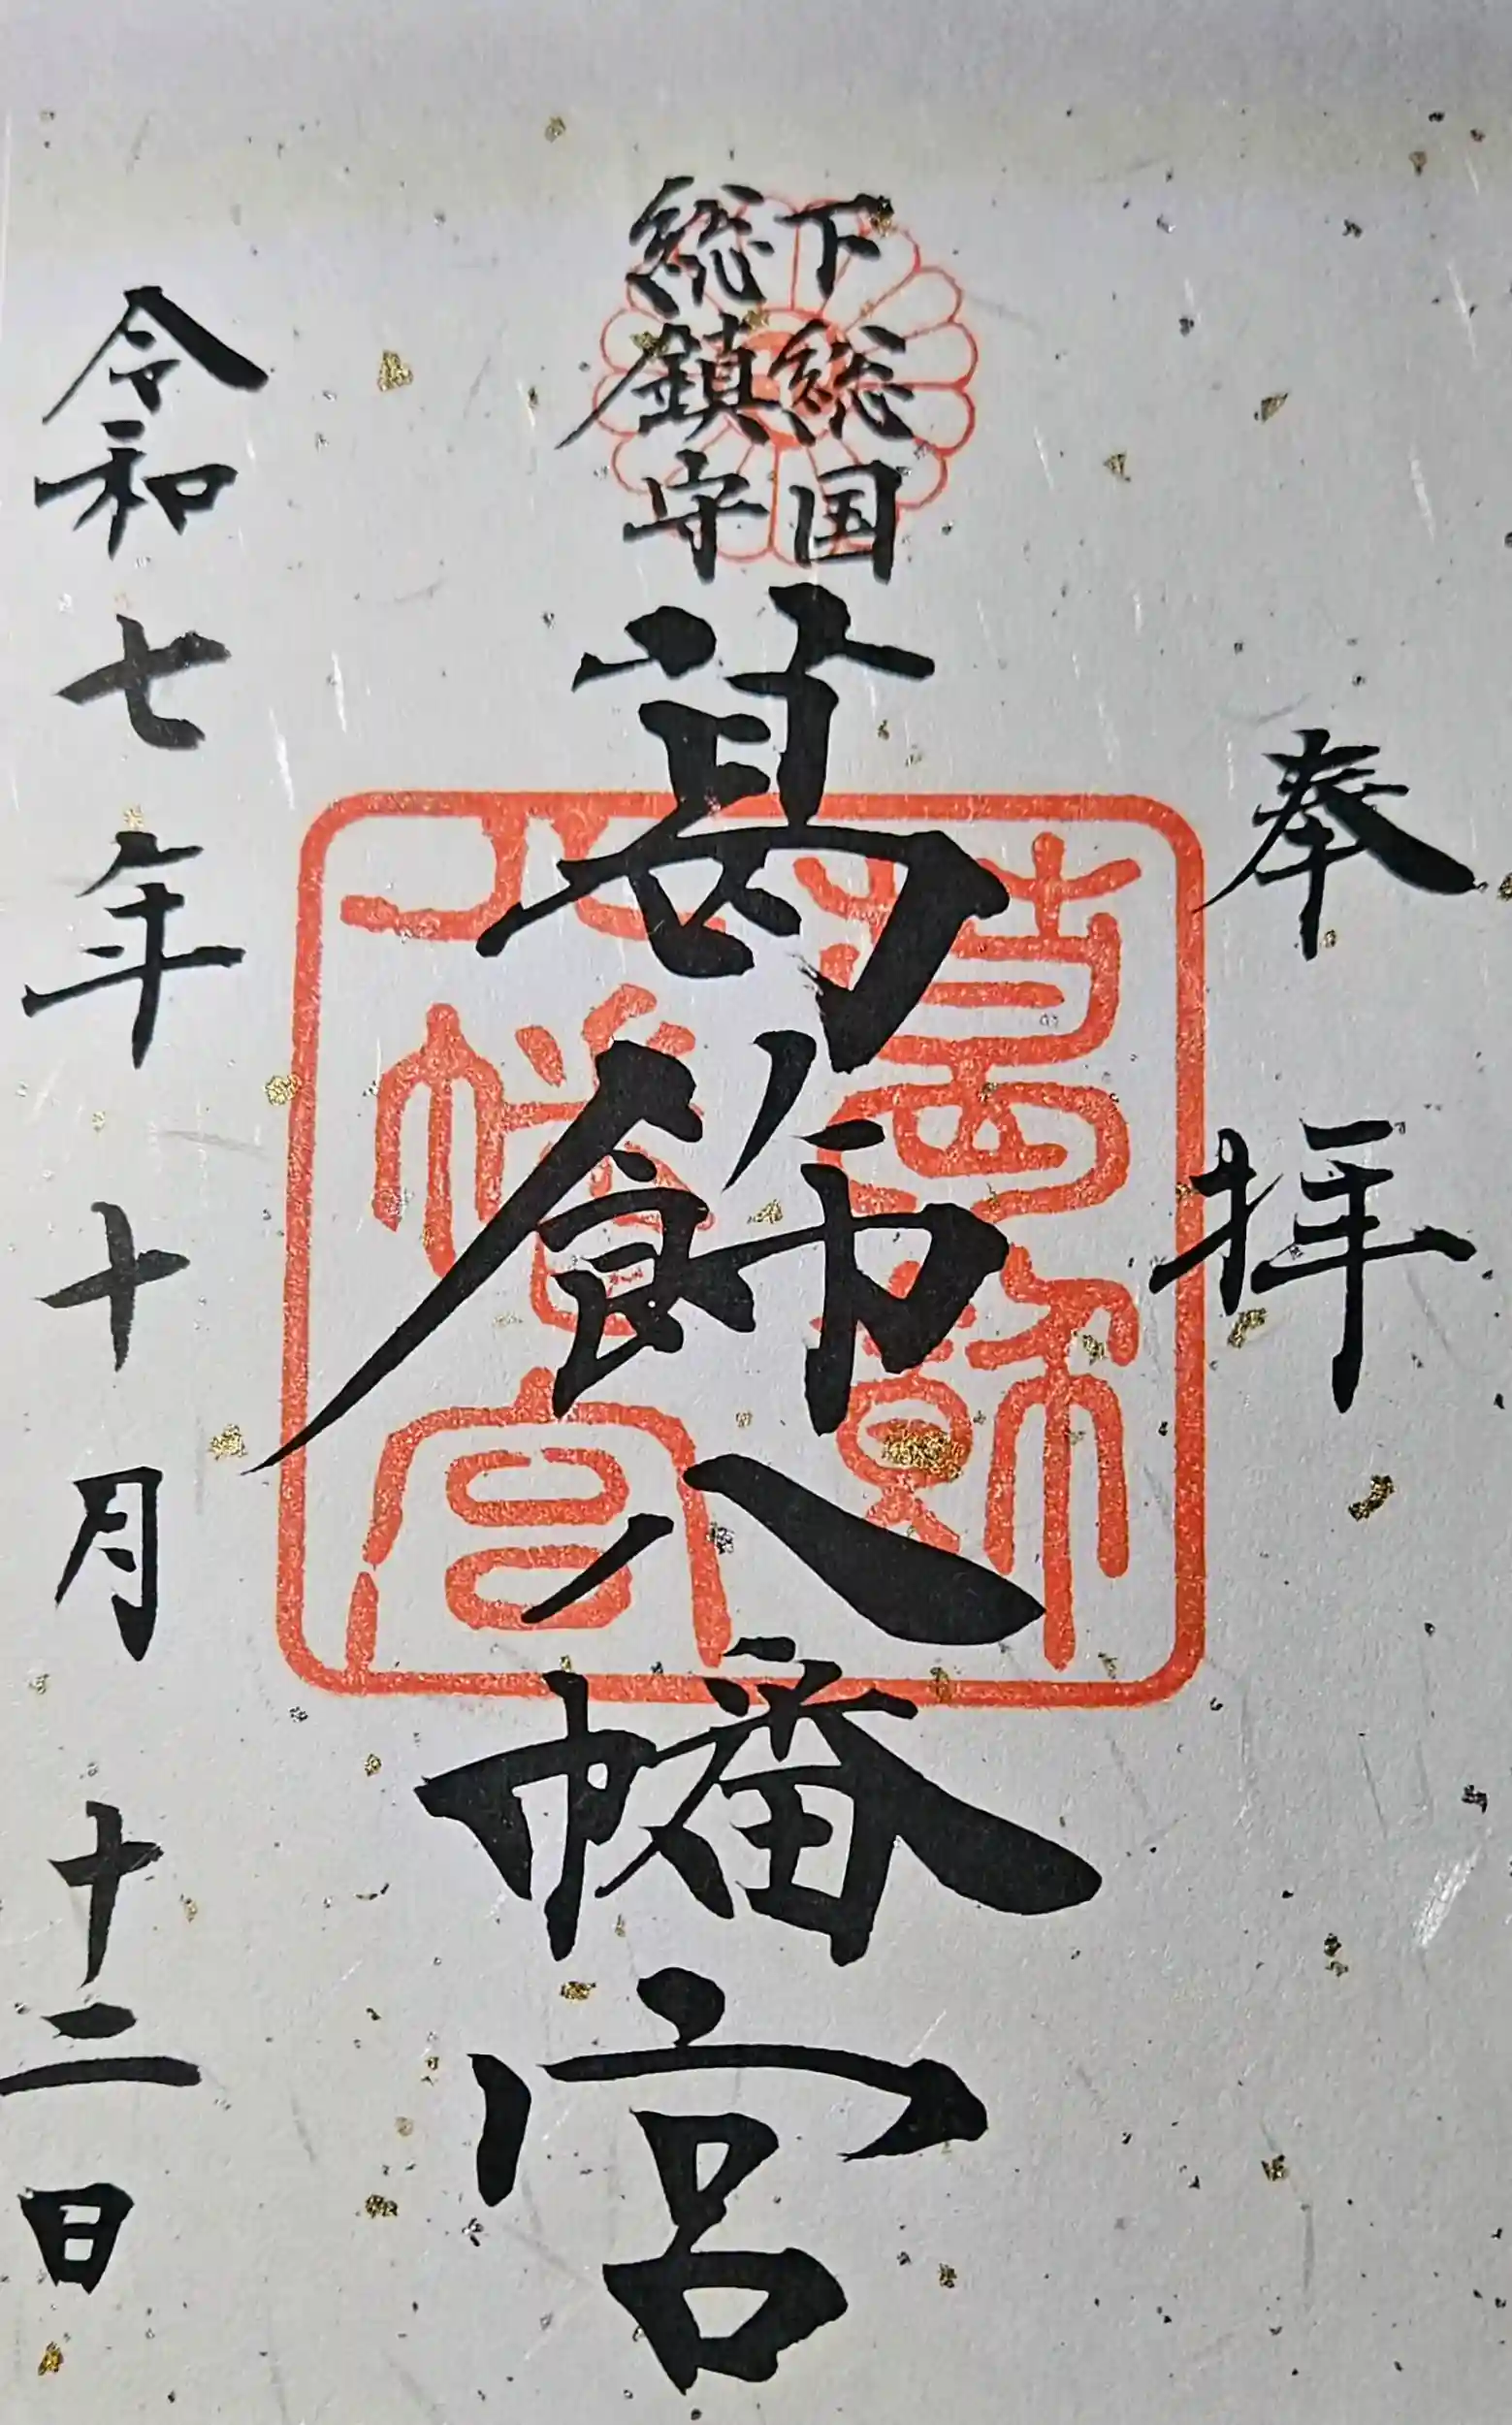 奉拝
下総国
総鎮守
葛飾八幡宮
葛飾
八幡宮
令和七年十月十二日